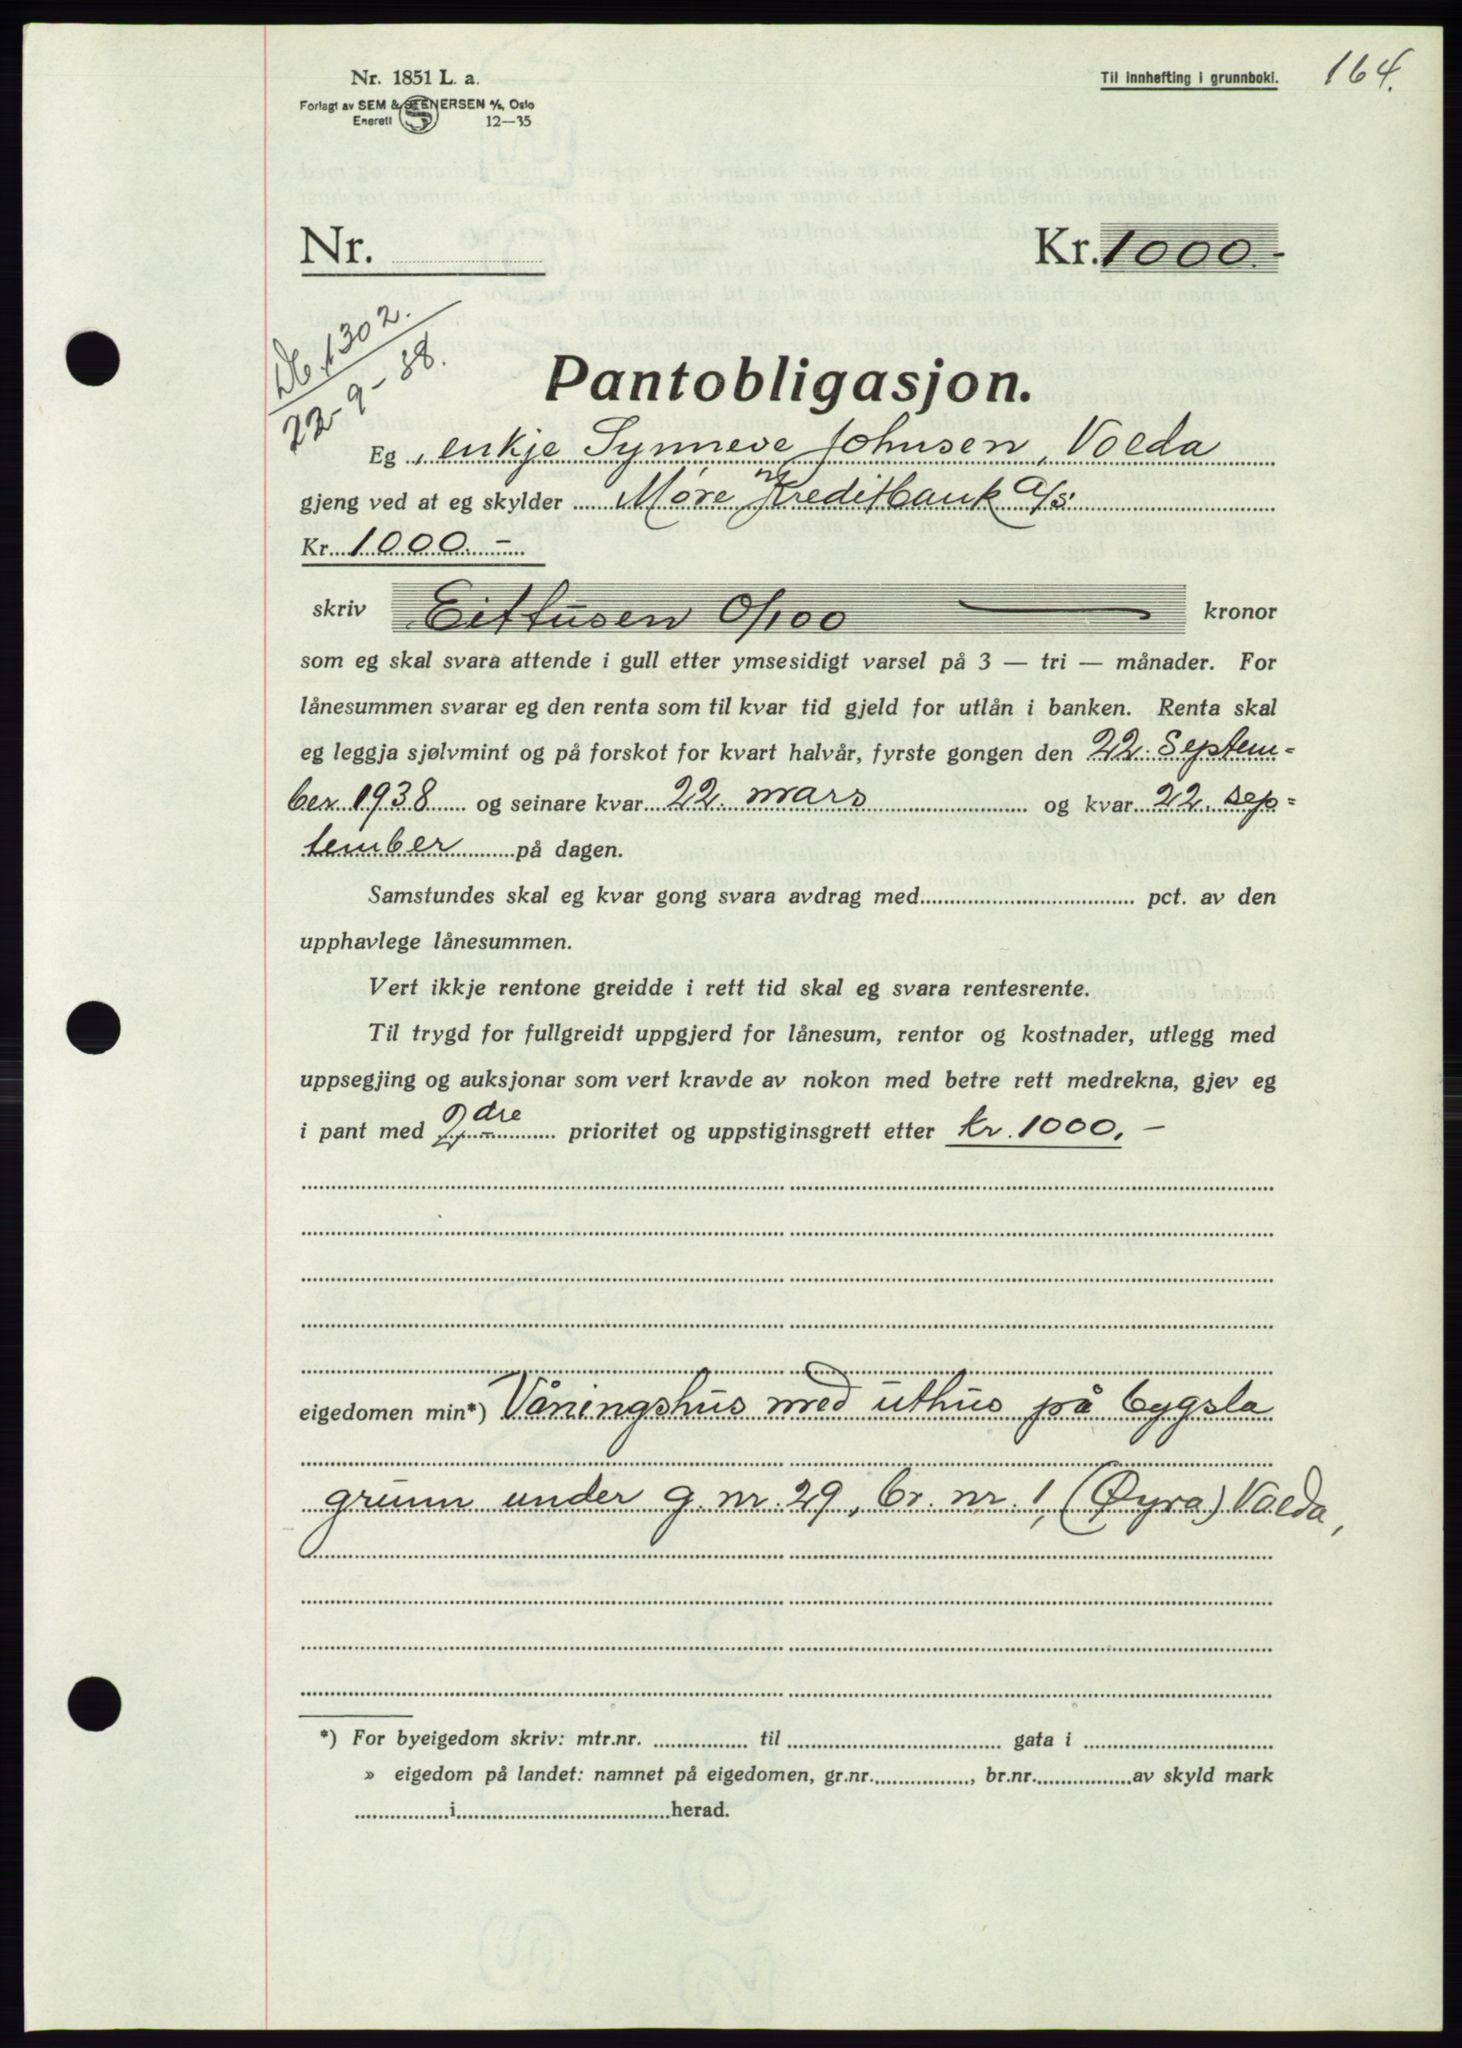 164.
Nr. 1851 L. a.
Til innhefting i grunnboki.
Forlagt av SEM & STENERSEN A/S, Oslo
Enerett 12—35
Nr. Kr. 1000.-
Db. 1302.
22-9-38.
Pantobligasjon.
Eg, enkje Synneve Johnsen, Volda
gjeng ved at eg skylder Møre Kreditbank A/S.
Kr. 1000.-
skriv Eittusen 0/100 kronor
som eg skal svara attende i gull etter ymsesidigt varsel på 3 — tri — månader. For
lånesummen svarar eg den renta som til kvar tid gjeld for utlån i banken. Renta skal
eg leggja sjølvmint og på forskot for kvart halvår, fyrste gongen den 22. Septem-
ber 1938 og seinare kvar 22. mars og kvar 22. sep-
tember på dagen.
Samstundes skal eg kvar gong svara avdrag med pct. av den
upphavlege lånesummen.
Vert ikkje rentone greidde i rett tid skal eg svara rentesrente.
Til trygd for fullgreidt uppgjerd for lånesum, rentor og kostnader, utlegg med
uppsegjing og auksjonar som vert kravde av nokon med betre rett medrekna, gjev eg
i pant med 2dre prioritet og uppstiginsgrett etter kr. 1000.-
eigedomen min*) Våningshus med uthus på bygsla
grunn under g. nr. 29, br. nr. 1, (Øyra) Volda,
*) For byeigedom skriv: mtr.nr. til gata i
» eigedom på landet: namnet på eigedomen, gr.nr. , br.nr. av skyld mark
i herad.